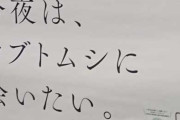 夜は、
ブトムシに
会いたい。